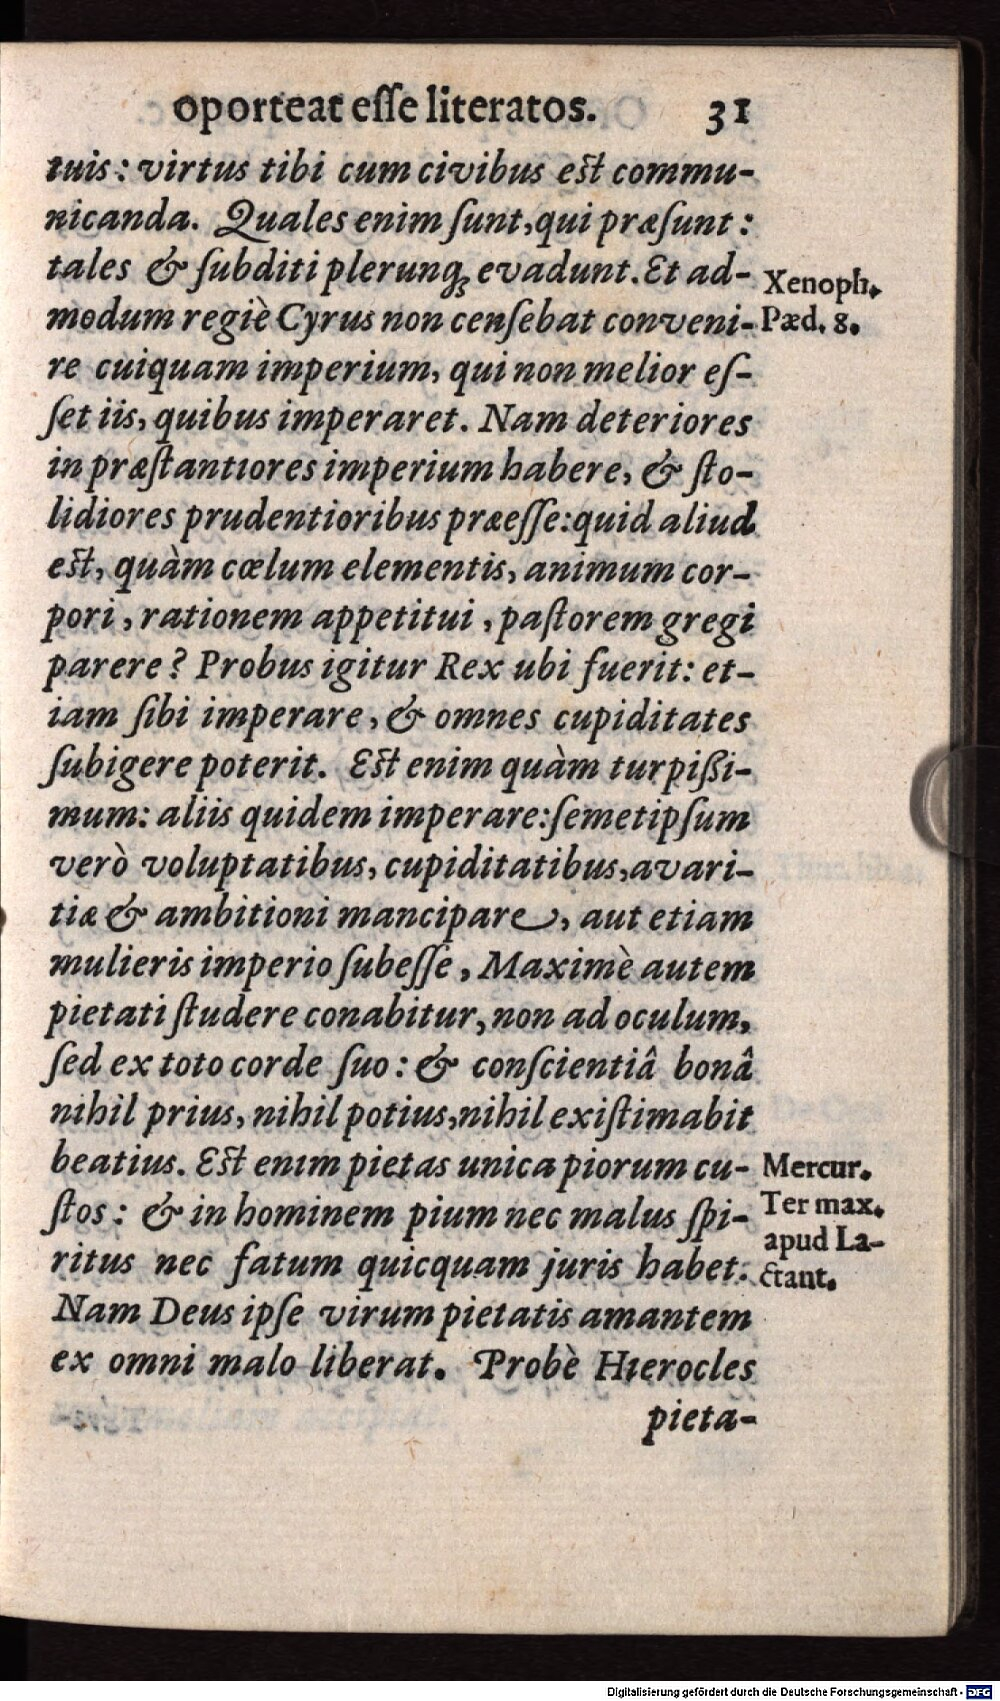 oporteat eſſe literatos. 31
tuis: virtus tibi cum civibus eſt commu-
nicanda. Quales enim ſunt, qui præſunt:
tales & ſubditi plerunq; evadunt. Et ad-
modum regiè Cyrus non cenſebat conveni-
re cuiquam imperium, qui non melior eſ-
ſet iis, quibus imperaret. Nam deteriores
in præſtantiores imperium habere, & ſto-
lidiores prudentioribus præeſſe: quid aliud
eſt, quàm cœlum elementis, animum cor-
pori, rationem appetitui, paſtorem gregi
parere? Probus igitur Rex ubi fuerit: et-
iam ſibi imperare, & omnes cupiditates
ſubigere poterit. Eſt enim quàm turpißi-
mum: aliis quidem imperare: ſemetipſum
verò voluptatibus, cupiditatibus, avari-
tiæ & ambitioni mancipare, aut etiam
mulieris imperio ſubeſſe, Maximè autem
pietati ſtudere conabitur, non ad oculum,
ſed ex toto corde ſuo: & conſcientiâ bonâ
nihil prius, nihil potius, nihil exiſtimabit
beatius. Eſt enim pietas unica piorum cu-
ſtos: & in hominem pium nec malus ſpi-
ritus nec fatum quicquam juris habet.
Nam Deus ipſe virum pietatis amantem
ex omni malo liberat. Probè Hierocles
pieta-
Xenoph.
Pæd. 8.
Mercur.
Ter max.
apud La-
ctant.
Digitalisierung gefördert durch die Deutsche Forschungsgemeinschaft - DFG